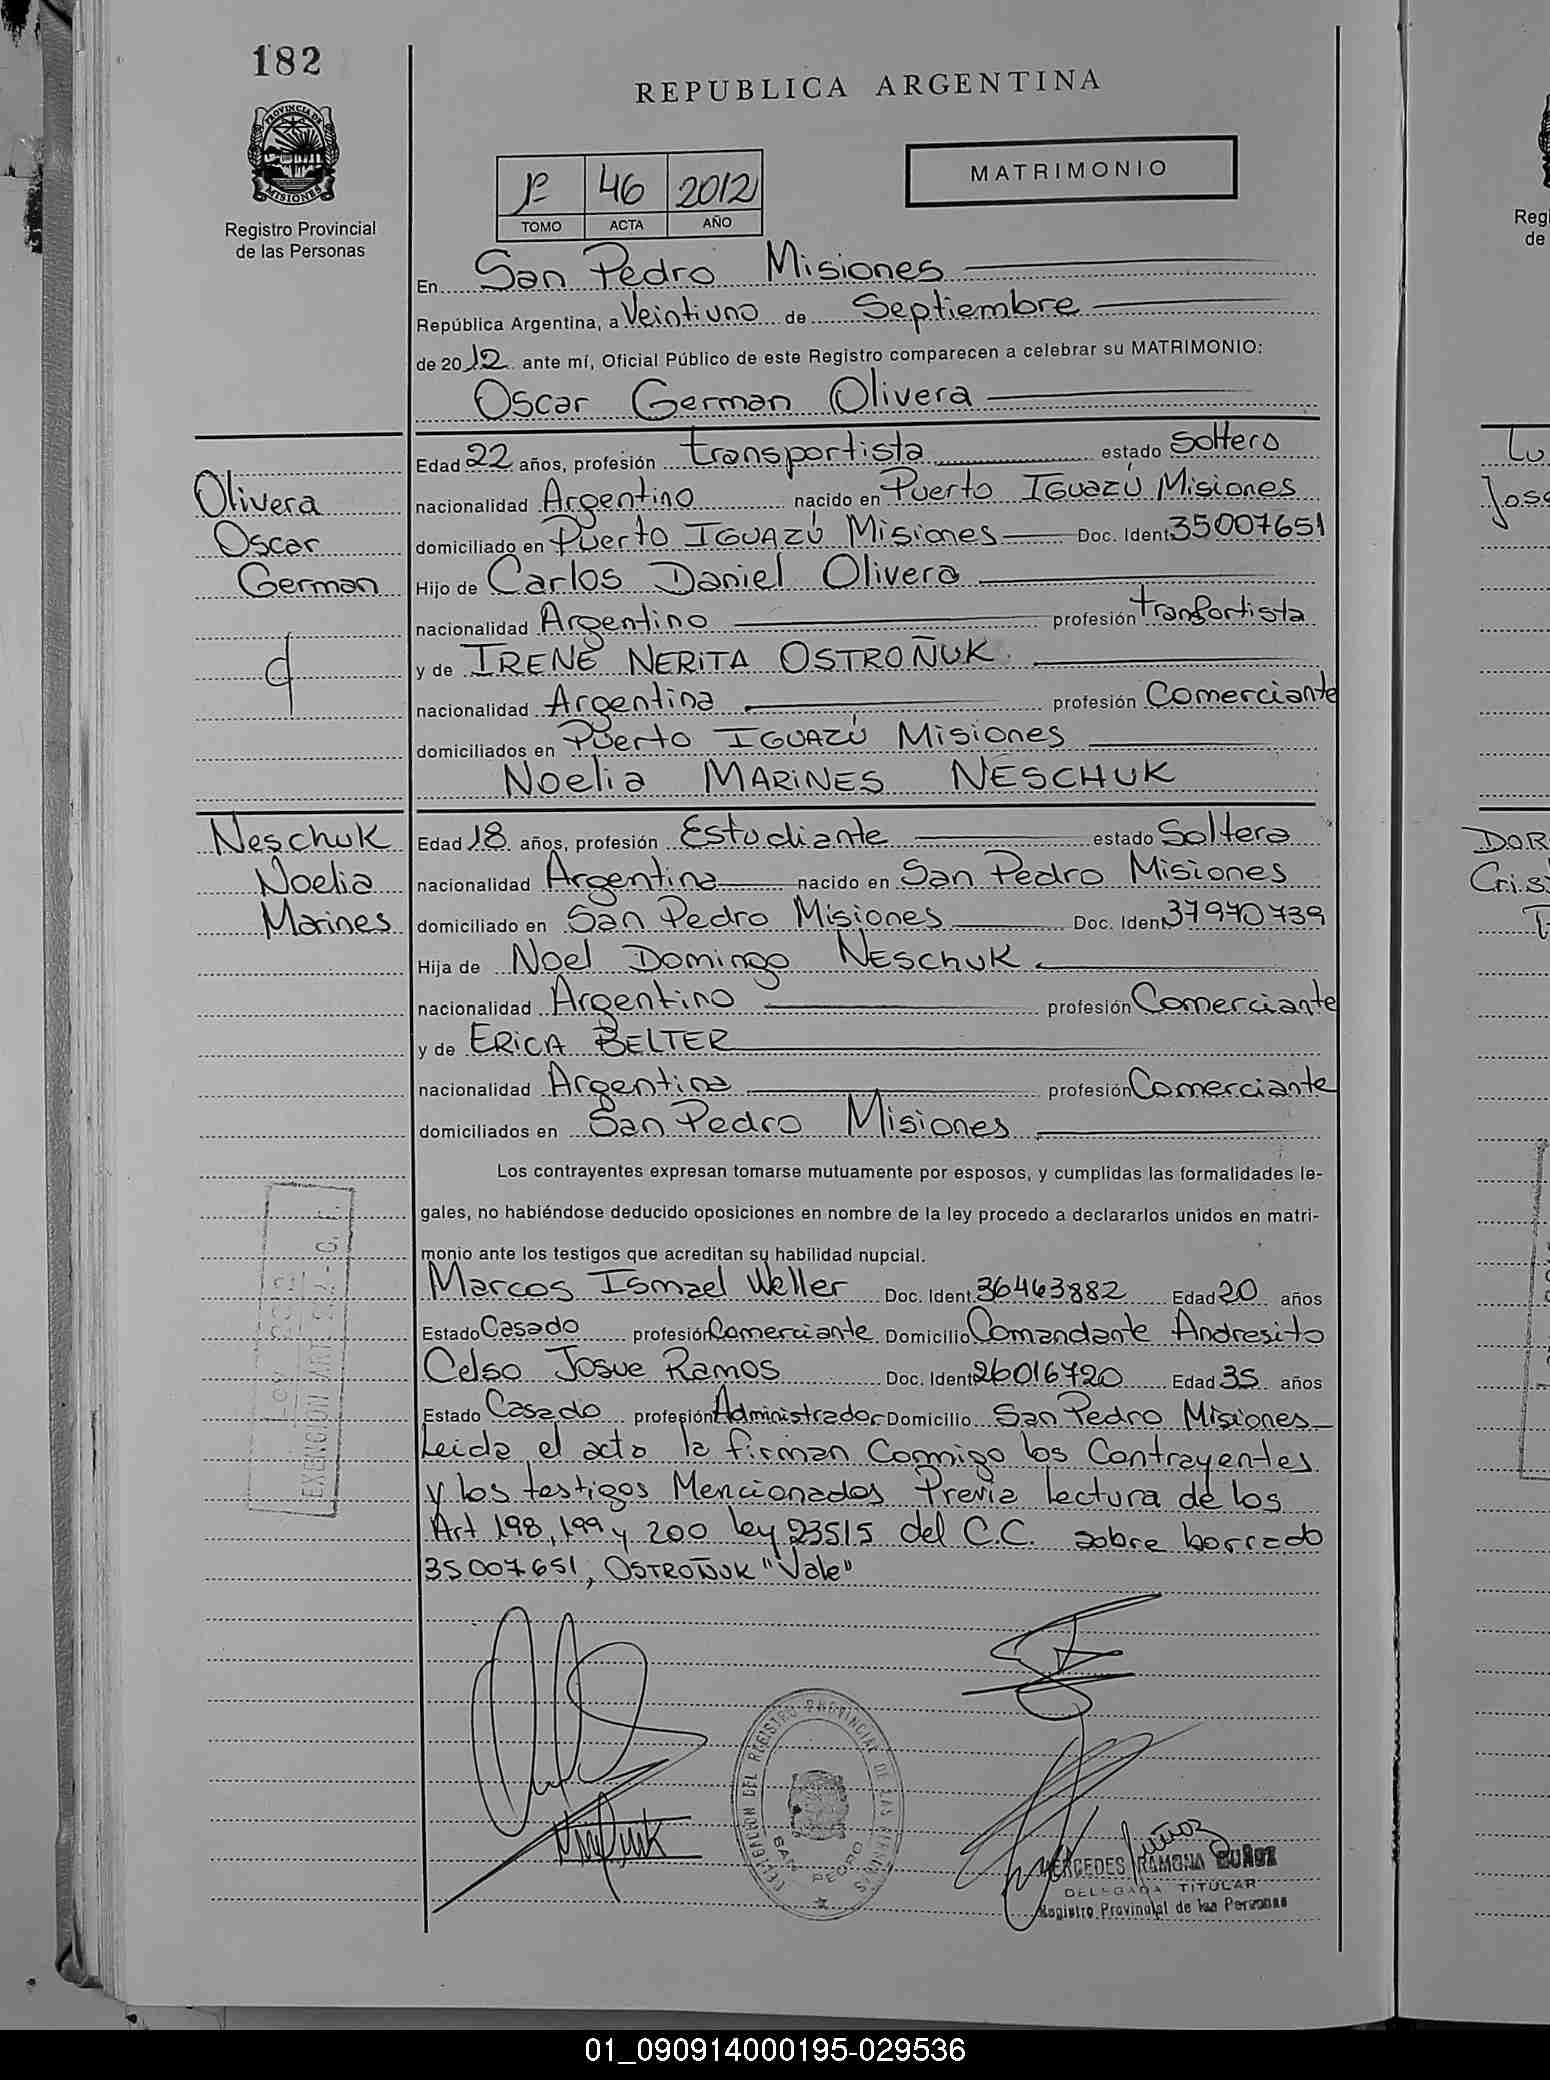 182
REPUBLICA ARGENTINA
PROVINCIA DE
MISIONES
Registro Provincial
de las Personas
1º 46 2012
TOMO ACTA AÑO
MATRIMONIO
En San Pedro Misiones
República Argentina, a Veintiuno de Septiembre
de 2012 ante mí, Oficial Público de este Registro comparecen a celebrar su MATRIMONIO:
Oscar German Olivera
Edad 22 años, profesión transportista estado Soltero
Olivera
nacionalidad Argentino nacido en Puerto IGUAZÚ Misiones
Oscar
domiciliado en Puerto IGUAZÚ Misiones Doc. Ident. 35007651
German
Hijo de Carlos Daniel Olivera
nacionalidad Argentino profesión tranportista
y de IRENE NERITA OSTROÑUK
nacionalidad Argentina profesión Comerciante
domiciliados en Puerto IGUAZÚ Misiones
Noelia MARINES NESCHUK
Neschuk
Edad 18 años, profesión Estudiante estado Soltera
Noelia
nacionalidad Argentina nacido en San Pedro Misiones
Marines
domiciliado en San Pedro Misiones Doc. Ident. 37970739
Hija de Noel Domingo NESCHUK
nacionalidad Argentino profesión Comerciante
y de ERICA BELTER
nacionalidad Argentina profesión Comerciante
domiciliados en San Pedro Misiones
Los contrayentes expresan tomarse mutuamente por esposos, y cumplidas las formalidades le-
gales, no habiéndose deducido oposiciones en nombre de la ley procedo a declararlos unidos en matri-
monio ante los testigos que acreditan su habilidad nupcial.
Marcos Ismael Weller Doc. Ident. 36463882 Edad 20 años
Estado Casado profesión Comerciante Domicilio Comandante Andresito
Celso Josue Ramos Doc. Ident. 26016720 Edad 35 años
Estado Casado profesión Administrador Domicilio San Pedro Misiones
Leida el acto la firman Conmigo los Contrayentes
y los testigos Mencionados Previa Lectura de los
Art 198, 199 y 200 ley 23515 del C.C. sobre borrado
35007651, OSTROÑUK "Vale"
EXENCION ART
DELEGACION DEL REGISTRO PROVINCIAL DE LAS PERSONAS
SAN PEDRO
Muñoz
MERCEDES RAMONA MUÑOZ
DELEGADA TITULAR
Registro Provincial de las Personas
Reg
de
Jose
DOR
Cris
01_090914000195-029536